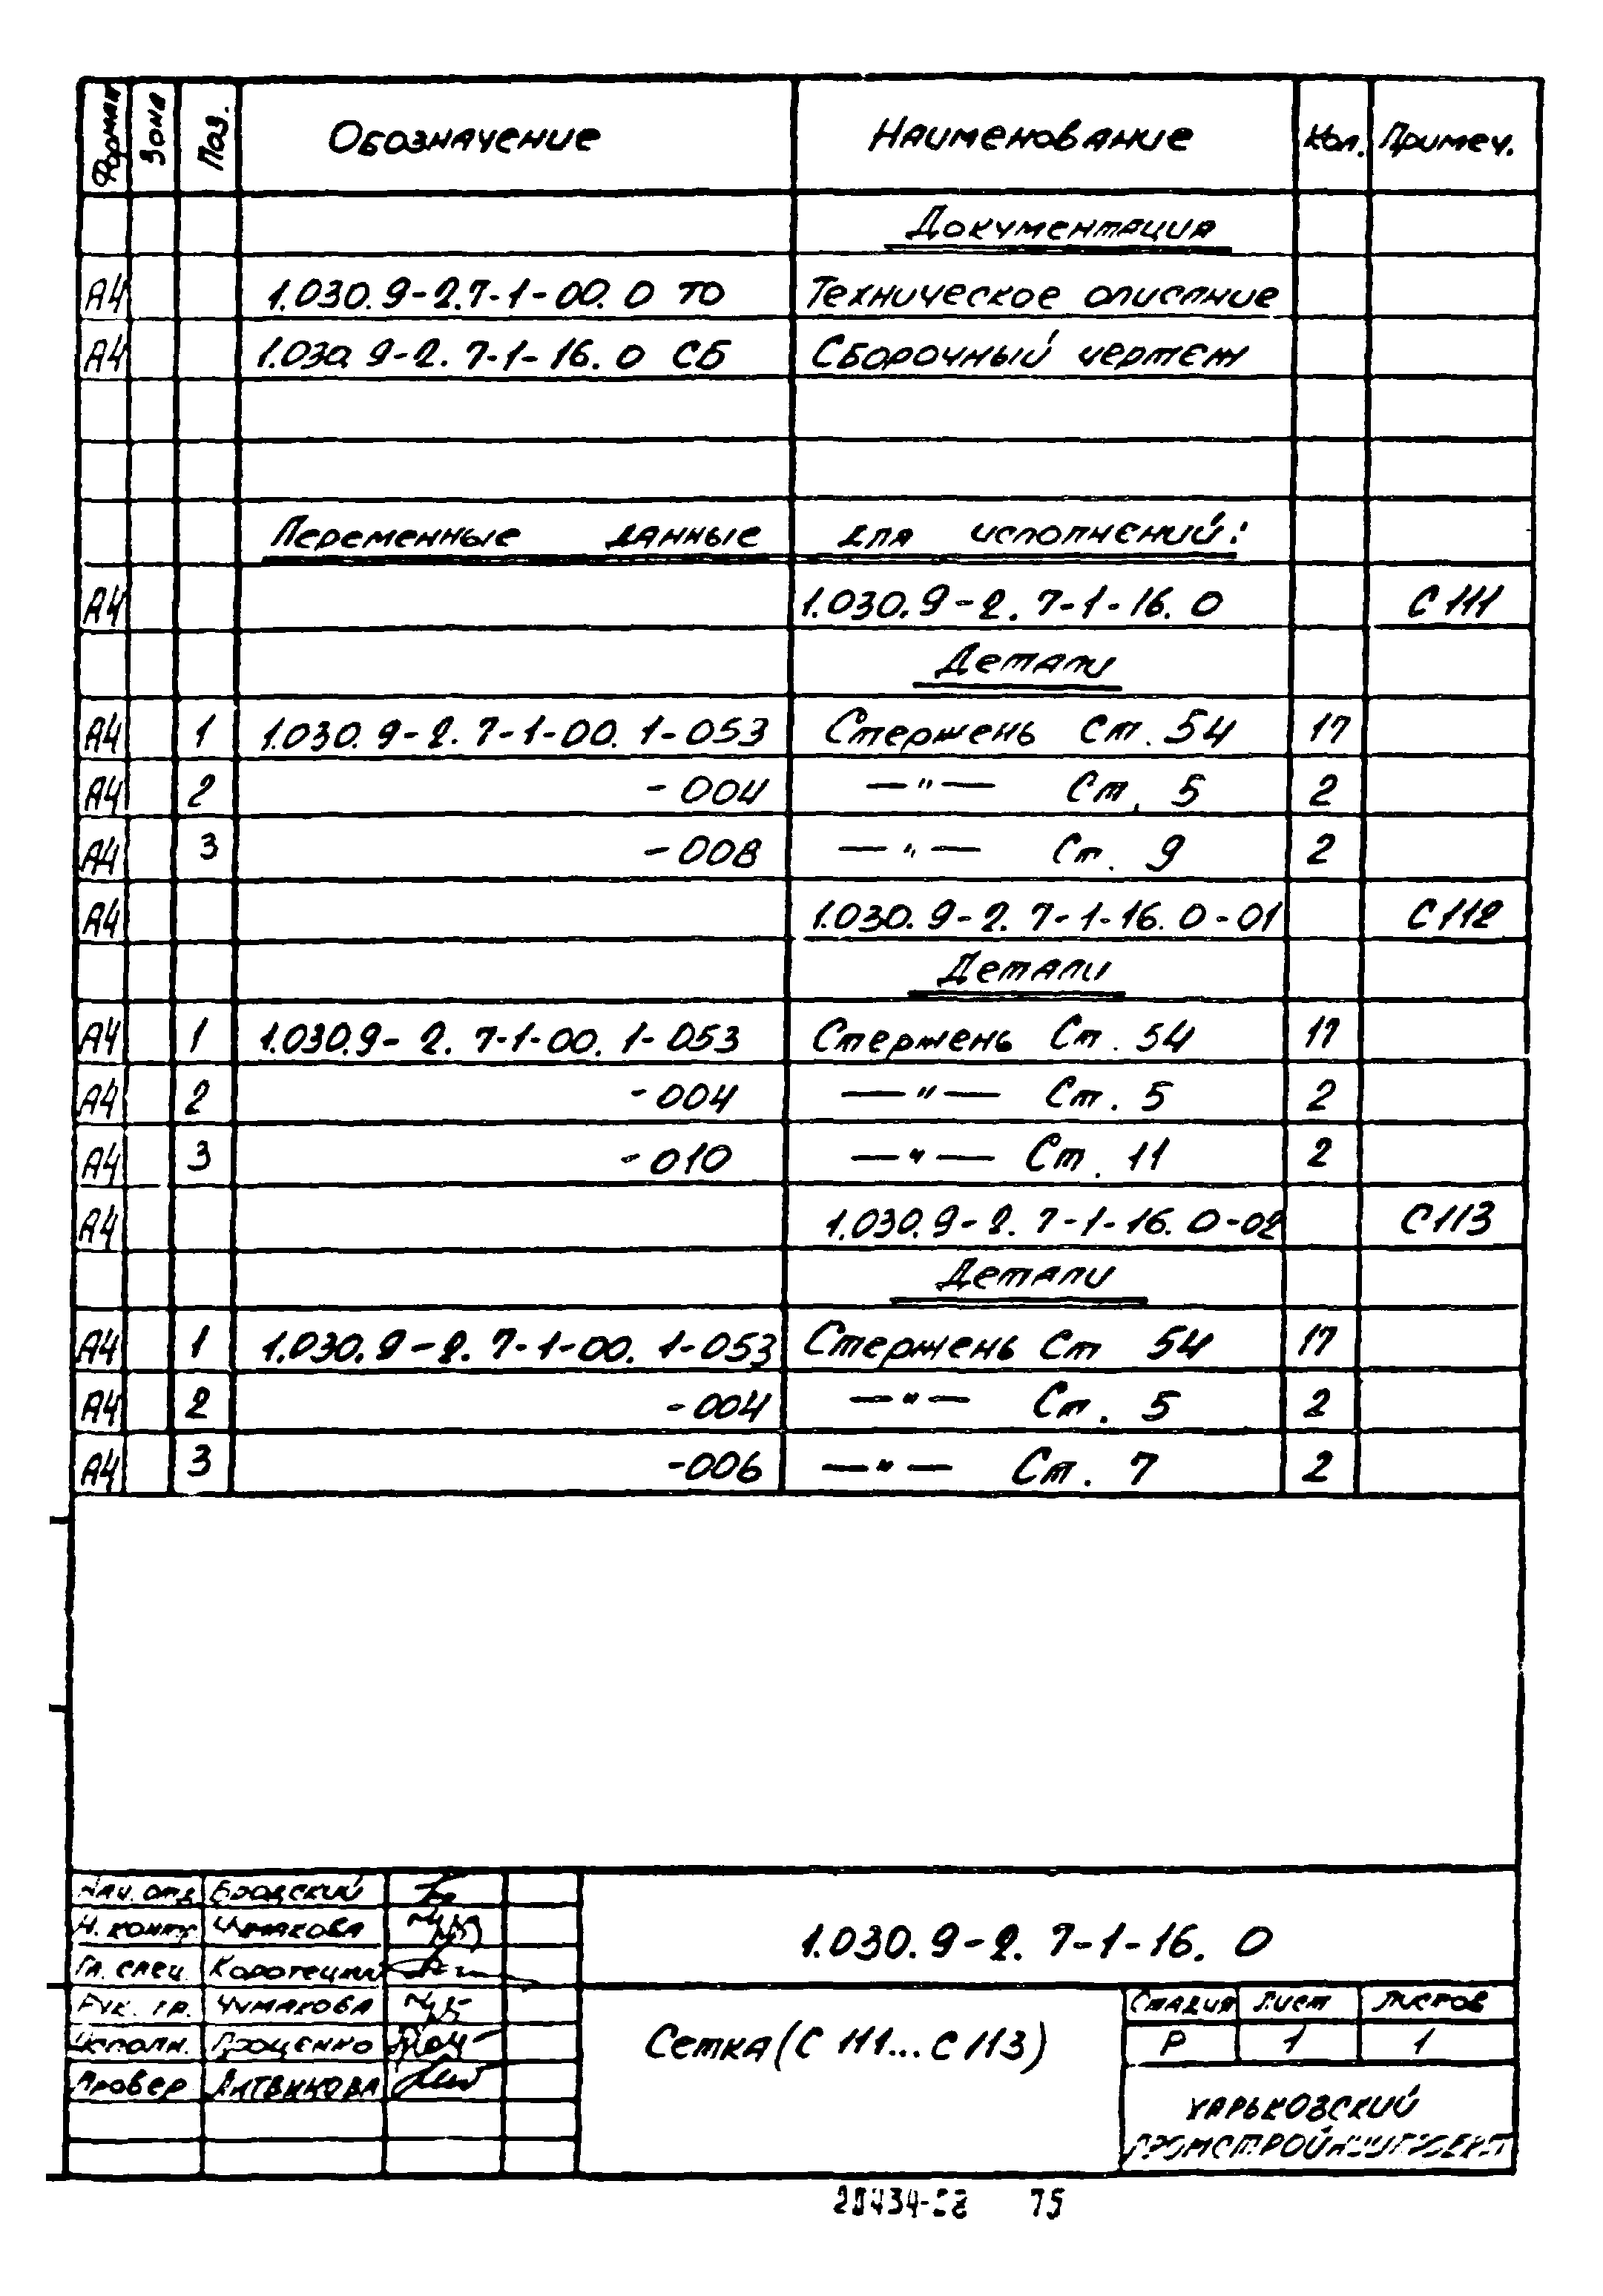 Формат Зона Поз. Обозначение Наименование Кол. Примеч.
Документация
А4 1.030.9-2.7-1-00.0 ТО Техническое описание
А4 1.030.9-2.7-1-16.0 СБ Сборочный чертеж
Переменные данные для исполнений:
А4 1.030.9-2.7-1-16.0 С 111
Детали
А4 1 1.030.9-2.7-1-00.1-053 Стержень Ст. 54 17
А4 2 -004 —"— Ст. 5 2
А4 3 -008 —"— Ст. 9 2
А4 1.030.9-2.7-1-16.0-01 С 112
Детали
А4 1 1.030.9-2.7-1-00.1-053 Стержень Ст. 54 17
А4 2 -004 —"— Ст. 5 2
А4 3 -010 —"— Ст. 11 2
А4 1.030.9-2.7-1-16.0-02 С 113
Детали
А4 1 1.030.9-2.7-1-00.1-053 Стержень Ст 54 17
А4 2 -004 —"— Ст. 5 2
А4 3 -006 —"— Ст. 7 2
Нач. отд Бродский
Н. контр Чумакова
Гл. спец. Коротецкий
Рук. гр. Чумакова
Исполн. Проценко
Провер Литвинова
1.030.9-2.7-1-16.0
Сетка (С 111...С 113)
Стадия Лист Листов
Р 1 1
Харьковский
Промстройниипроект
75